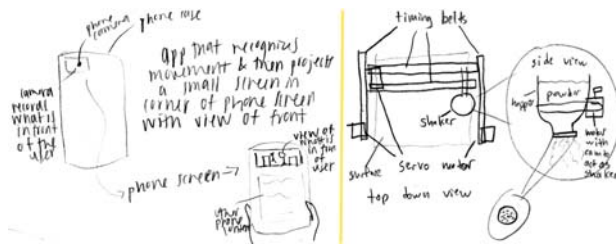 phone camera
phone case
camera
records
what is
in front
of the
user
app that recognizes
movement & then projects
a small screen in
corner of phone screen
with view of front
phone screen
view of what
is in front of
user
other
phone
timing belts
shaker
surface
servo motor
top down view
side view
hopper
powder
motor
with
act as
shaker